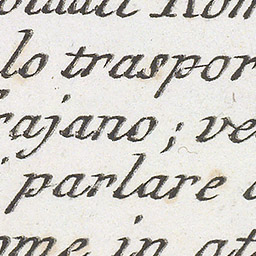 lo traspor
rajano; ve
parlare
ome in at